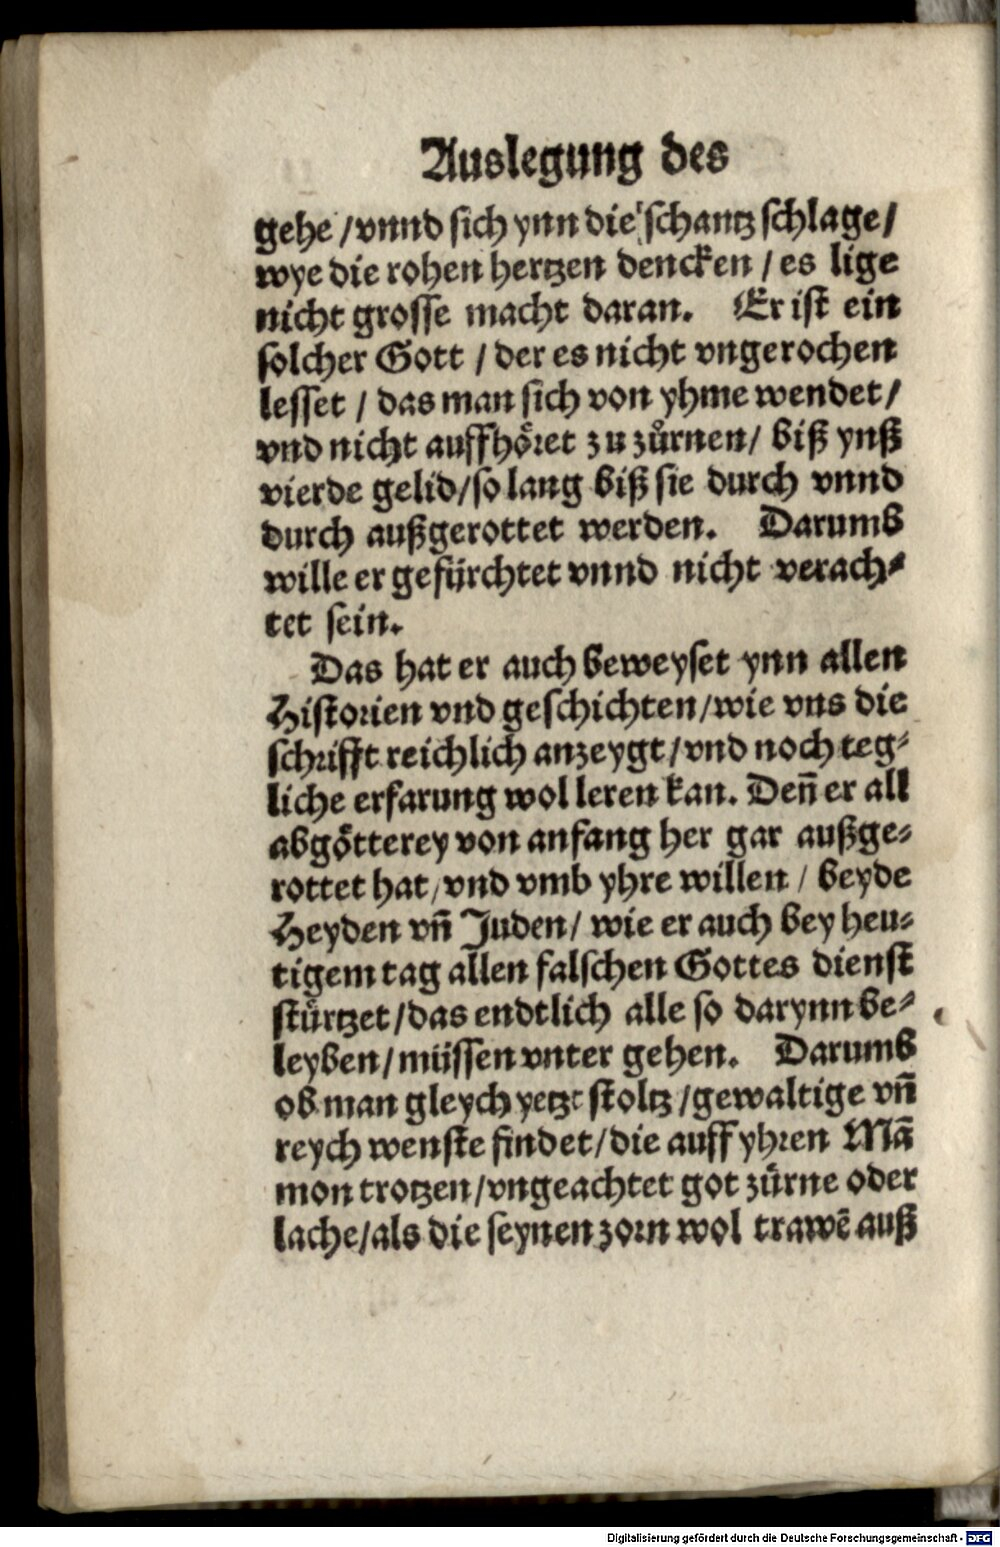 Auslegung des
gehe / vnnd sich ynn die schantz schlage /
wye die rohen hertzen dencken / es lige
nicht grosse macht daran. Er ist ein
solcher Gott / der es nicht vngerochen
lesset / das man sich von yhme wendet /
vnd nicht auffhöret zu zürnen / biß ynß
vierde gelid / so lang biß sie durch vnnd
durch außgerottet werden. Darumb
wille er gefürchtet vnnd nicht verach⸗
tet sein.
Das hat er auch beweyset ynn allen
Historien vnd geschichten / wie vns die
schrifft reichlich anzeygt / vnd noch teg⸗
liche erfarung wol leren kan. Deñ er all
abgötterey von anfang her gar außge⸗
rottet hat / vnd vmb yhre willen / beyde
Heyden vñ Juden / wie er auch bey heu⸗
tigem tag allen falschen Gottes dienst
stürtzet / das endtlich alle so darynn be⸗
leyben / müssen vnter gehen. Darumb
ob man gleych yetzt stoltz / gewaltige vñ
reych wenste findet / die auff yhren Mã
mon trotzen / vngeachtet got zürne oder
lache / als die seynen zorn wol trawẽ auß
Digitalisierung gefördert durch die Deutsche Forschungsgemeinschaft - DFG